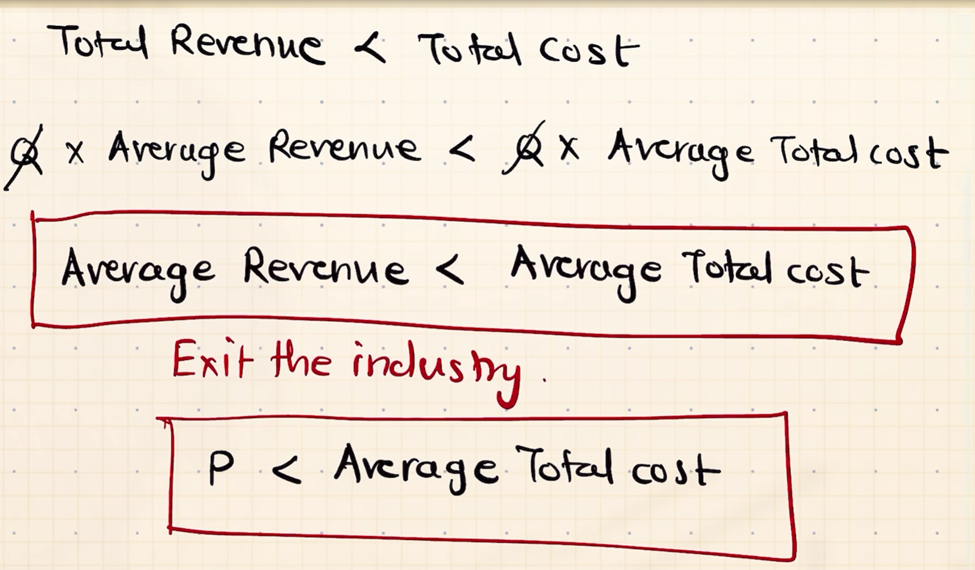 Total Revenue < Total cost
Q x Average Revenue < Q x Average Total cost
Average Revenue < Average Total cost
Exit the industry.
P < Average Total cost